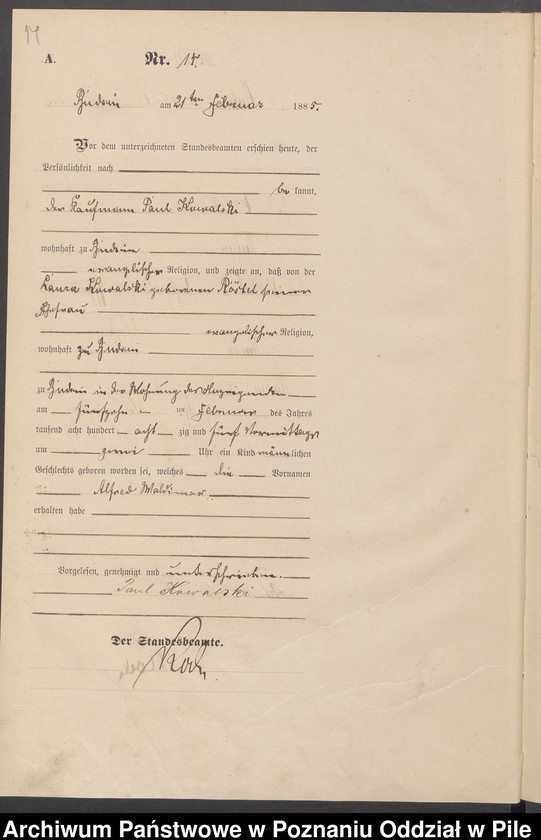 14
A. Nr. 14.
Budzin am 21ten Februar 1885.
Vor dem unterzeichneten Standesbeamten erschien heute, der
Persönlichkeit nach
be kannt,
der Kaufmann Paul Kowalski
wohnhaft zu Budzin
evangelischer Religion, und zeigte an, daß von der
Laura Kowalski geborenen Röstel seiner
Ehefrau
evangelischer Religion,
wohnhaft zu Budzin
zu Budzin in der Wohnung des Anzeigenden
am fünfzehn ten Februar des Jahres
tausend acht hundert acht zig und fünf Vormittags
um zwei Uhr ein Kind männlichen
Geschlechts geboren worden sei, welches die Vornamen
Alfred Waldimar
erhalten habe
Vorgelesen, genehmigt und unterschrieben.
Paul Kowalski
Der Standesbeamte.
Archiwum Państwowe w Poznaniu Oddział w Pile